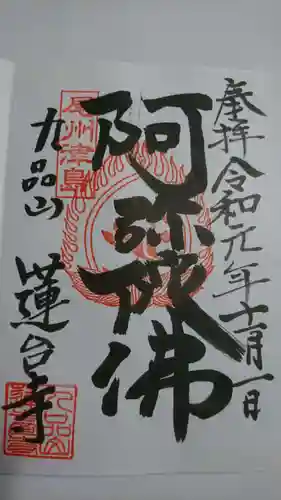 奉拝 令和元年十一月一日
阿弥陀佛
尾州津島
九品山
蓮台寺